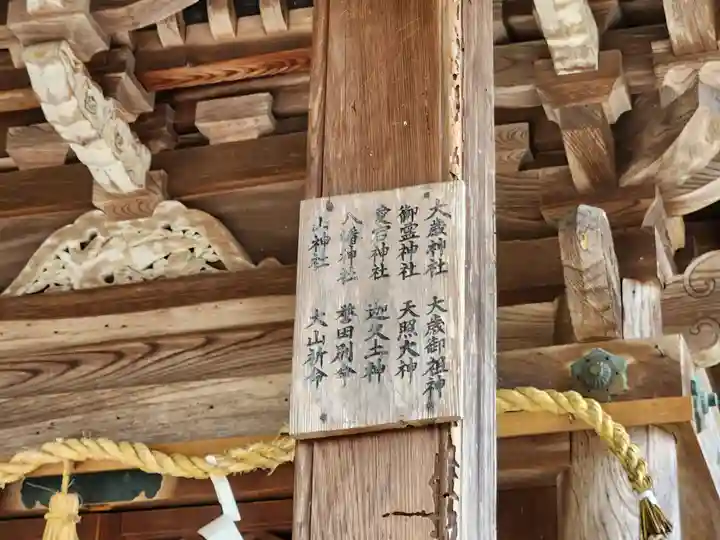 大歳神社 大歳御祖神
御霊神社 天照大神
愛宕神社 迦具土神
八幡神社 誉田別命
山神社 大山祈命